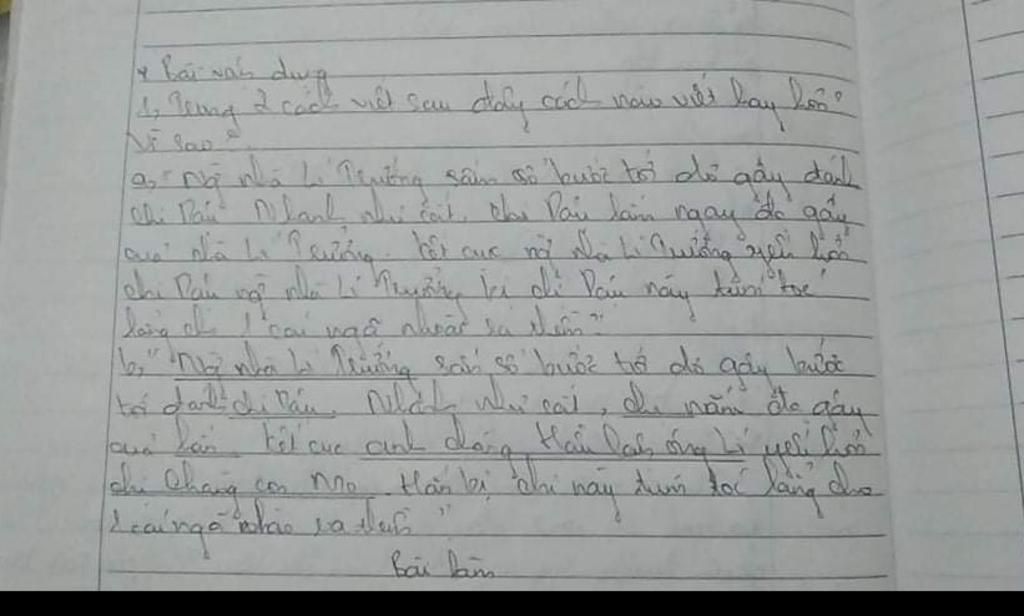 * Bài vận dụng
1, Trong 2 cách viết sau đây cách nào viết hay hơn?
Vì sao?
a, "Người nhà Lí Trưởng sấn sổ bước tới dơ gậy đánh
chị Dậu. Nhanh như cắt, chị Dậu nắm ngay đc gậy
của nhà Lí Trưởng. Kết cục người nhà Lí Trưởng yếu hơn
chị Dậu người nhà Lí Trưởng bị chị Dậu này túm tóc
lẳng cho 1 cái ngã nhào ra thềm."
b, "Người nhà Lí Trưởng sấn sổ bước tới dơ gậy bước
tới đánh chị Dậu. Nhanh như cắt, chị nắm đc gậy
của hắn. Kết cục anh chàng Hầu cận ông Lí yếu hơn
chị chàng con mọn. Hắn bị chị này túm tóc lẳng cho
1 cái ngã nhào ra thềm"
Bài làm